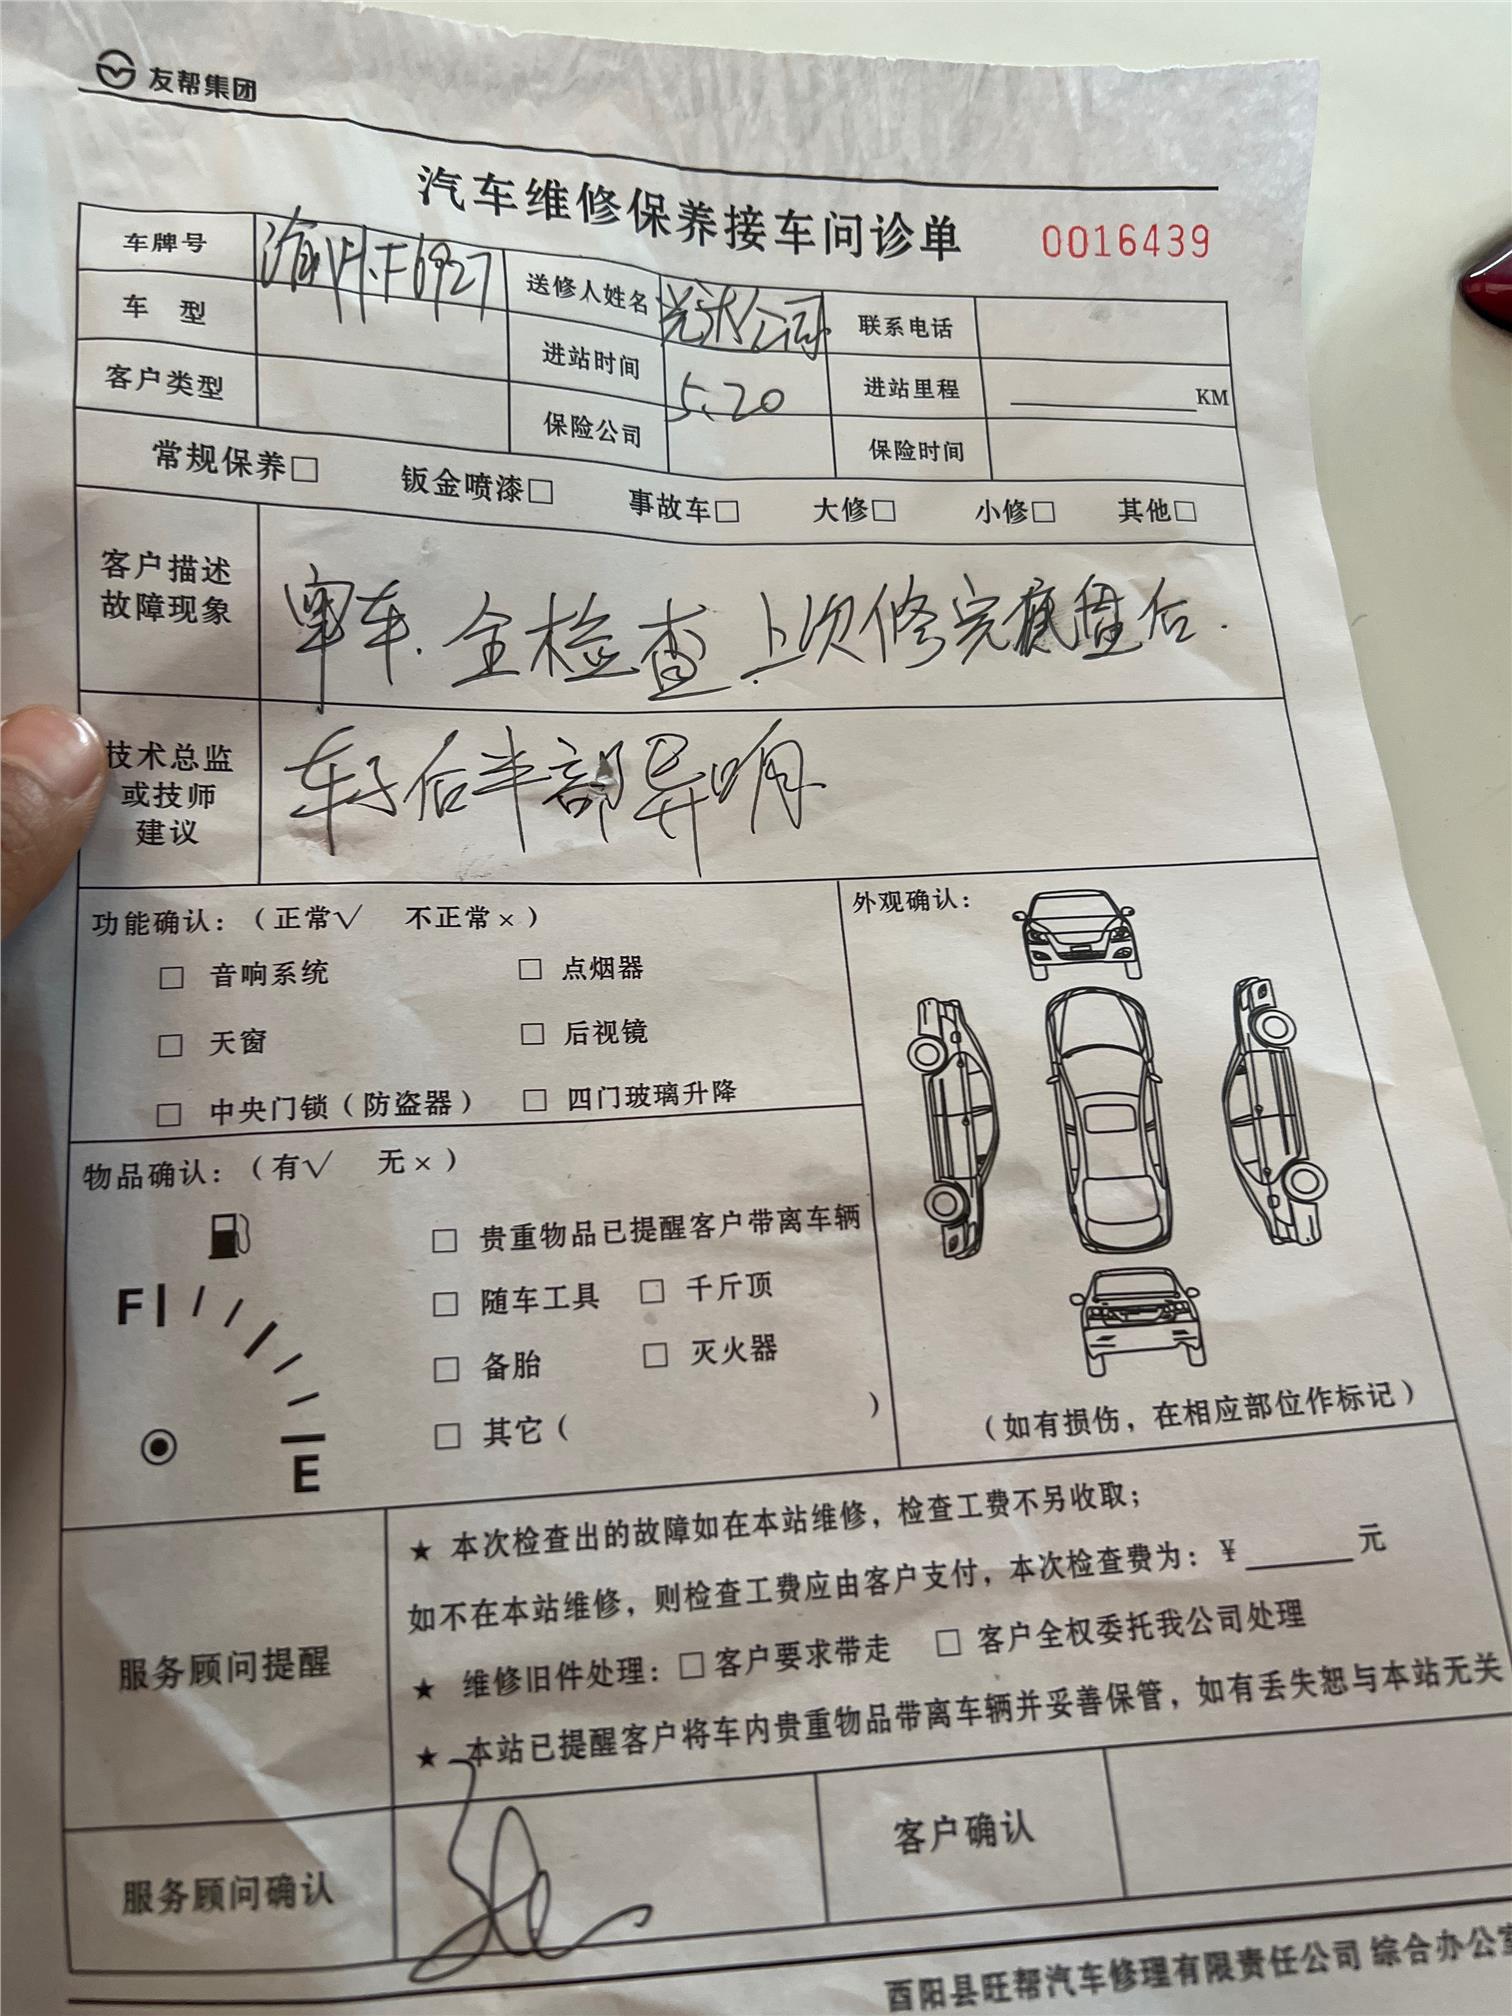 友帮集团
汽车维修保养接车问诊单 0016439
车牌号 送修人姓名 公司 联系电话
车 型 进站时间 5.20 进站里程 KM
客户类型 保险公司 保险时间
常规保养□ 钣金喷漆□ 事故车□ 大修□ 小修□ 其他□
客户描述
故障现象
审车.全检查.上次修完底盘后.
技术总监
或技师
建议
车子后半部异响
功能确认：（正常√ 不正常×）
□ 音响系统 □ 点烟器
□ 天窗 □ 后视镜
□ 中央门锁（防盗器） □ 四门玻璃升降
外观确认：
（如有损伤，在相应部位作标记）
物品确认：（有√ 无×）
F
E
□ 贵重物品已提醒客户带离车辆
□ 随车工具 □ 千斤顶
□ 备胎 □ 灭火器
□ 其它（ ）
服务顾问提醒
★ 本次检查出的故障如在本站维修，检查工费不另收取；
如不在本站维修，则检查工费应由客户支付，本次检查费为：¥______元
★ 维修旧件处理：□客户要求带走 □ 客户全权委托我公司处理
★ 本站已提醒客户将车内贵重物品带离车辆并妥善保管，如有丢失恕与本站无关
服务顾问确认 客户确认
酉阳县旺帮汽车修理有限责任公司 综合办公室